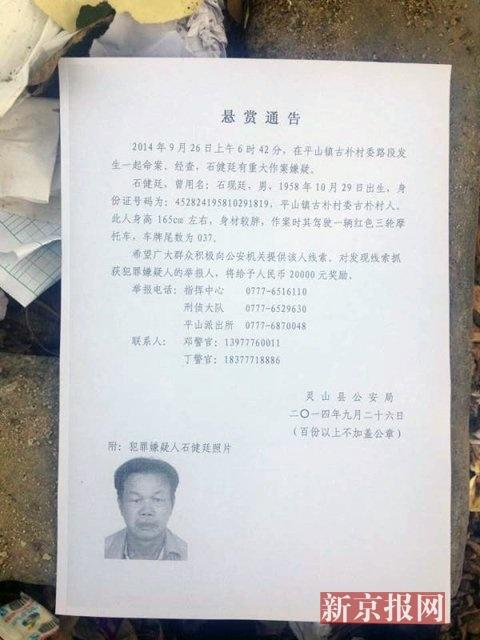 悬赏通告
2014年9月26日上午6时42分，在平山镇古朴村委路段发
生一起命案。经查，石健廷有重大作案嫌疑。
石健廷，曾用名：石现廷，男，1958年10月29日出生，身
份证号码为：452824195810291819，平山镇古朴村委古朴村人。
此人身高165cm左右，身材较胖，作案时其驾驶一辆红色三轮摩
托车，车牌尾数为037。
希望广大群众积极向公安机关提供该人线索。对发现线索抓
获犯罪嫌疑人的举报人，将给予人民币20000元奖励。
举报电话：指挥中心 0777-6516110
刑侦大队 0777-6529630
平山派出所 0777-6870048
联系人：邓警官：13977760011
丁警官：18377718886
灵山县公安局
二〇一四年九月二十六日
（百份以上不加盖公章）
附：犯罪嫌疑人石健廷照片
新京报网